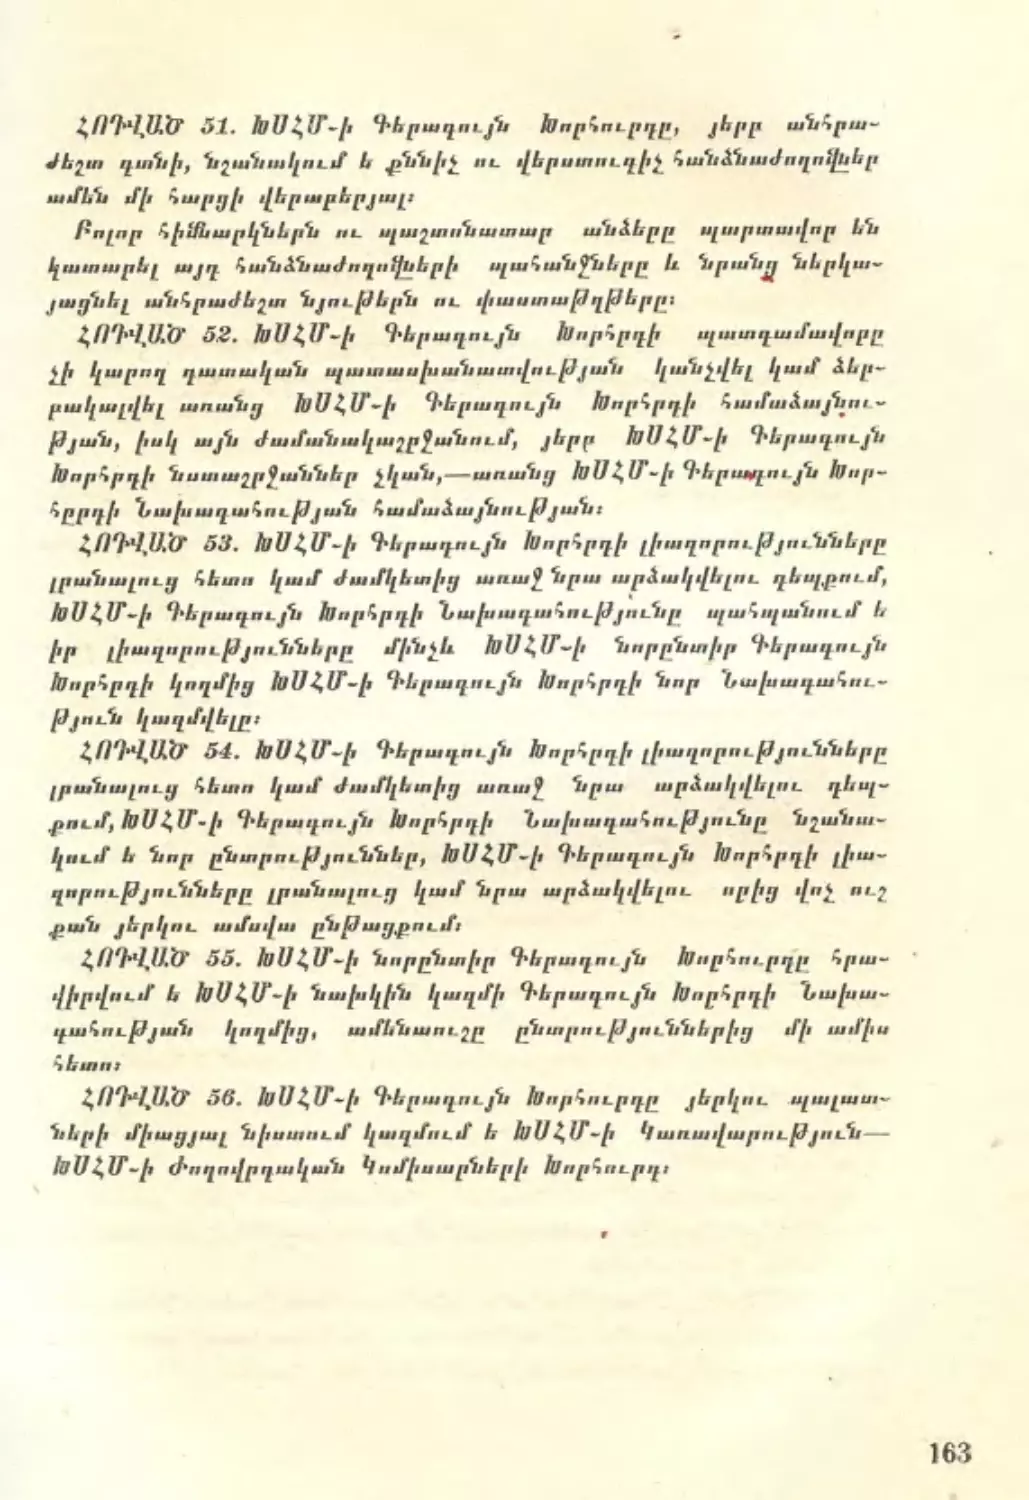 ՀՈԴՎԱԾ 51. ԽՍՀՄ-ի Գերագույն Խորհուրդը, յերբ անհրա-
ժեշտ գտնի, նշանակում ե քննիչ ու վերստուգիչ հանձնաժողովներ
ամեն մի հարցի վերաբերյալ։
Բոլոր հիմնարկներն ու պաշտոնատար անձերը պարտավոր են
կատարել այդ հանձնաժողովների պահանջները և նրանց ներկա-
յացնել անհրաժեշտ նյութերն ու փաստաթղթերը։
ՀՈԴՎԱԾ 52. ԽՍՀՄ-ի Գերագույն Խորհրդի պատգամավորը
չի կարող դատական պատասխանատվության կանչվել կամ ձեր-
բակալվել առանց ԽՍՀՄ-ի Գերագույն Խորհրդի համաձայնու-
թյան, իսկ այն ժամանակաշրջանում, յերբ ԽՍՀՄ-ի Գերագույն
Խորհրդի նստաշրջաններ չկան,—առանց ԽՍՀՄ-ի Գերագույն Խոր-
հըրդի Նախագահության համաձայնության։
ՀՈԴՎԱԾ 53. ԽՍՀՄ-ի Գերագույն Խորհրդի լիազորությունները
լրանալուց հետո կամ ժամկետից առաջ նրա արձակվելու դեպքում,
ԽՍՀՄ-ի Գերագույն Խորհրդի Նախագահությունը պահպանում ե
իր լիազորությունները մինչև ԽՍՀՄ-ի նորընտիր Գերագույն
Խորհրդի կողմից ԽՍՀՄ-ի Գերագույն Խորհրդի նոր Նախագահու-
թյուն կազմվելը։
ՀՈԴՎԱԾ 54. ԽՍՀՄ-ի Գերագույն Խորհրդի լիազորությունները
լրանալուց հետո կամ ժամկետից առաջ նրա արձակվելու դեպ-
քում, ԽՍՀՄ-ի Գերագույն Խորհրդի Նախագահությունը նշանա-
կում ե նոր ընտրություններ, ԽՍՀՄ-ի Գերագույն Խորհրդի լիա-
զորությունները լրանալուց կամ նրա արձակվելու որից վոչ ուշ
քան յերկու ամսվա ընթացքում։
ՀՈԴՎԱԾ 55. ԽՍՀՄ-ի նորընտիր Գերագույն Խորհուրդը հրա-
վիրվում ե ԽՍՀՄ-ի նախկին կազմի Գերագույն Խորհրդի Նախա-
գահության կողմից, ամենաուշը ընտրություններից մի ամիս
հետո։
ՀՈԴՎԱԾ 56. ԽՍՀՄ-ի Գերագույն Խորհուրդը յերկու պալատ-
ների միացյալ նիստում կազմում ե ԽՍՀՄ-ի Կառավարություն—
ԽՍՀՄ-ի Ժողովրդական Կոմիսարների Խորհուրդ։
163